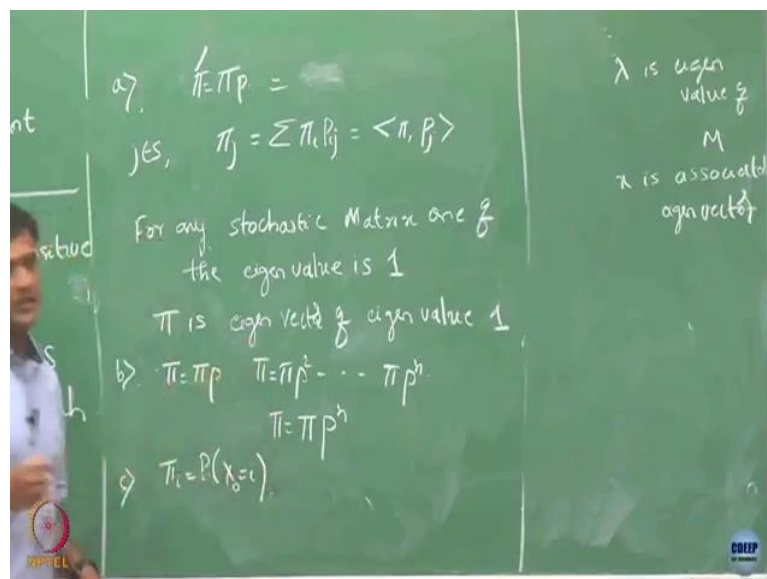 nt
sitive
s
h
a). π = πP =
j∈S, πj = Σ πi Pij = <π, Pj>
For any stochastic Matrix one of
the eigen value is 1
π is eigen vector of eigen value 1
b). π = πP π = πP² - - - πPⁿ
π = πPⁿ
c) πi = P(X₀=i)
λ is eigen
value of
M
x is associated
eigenvector
NPTEL
CDEEP